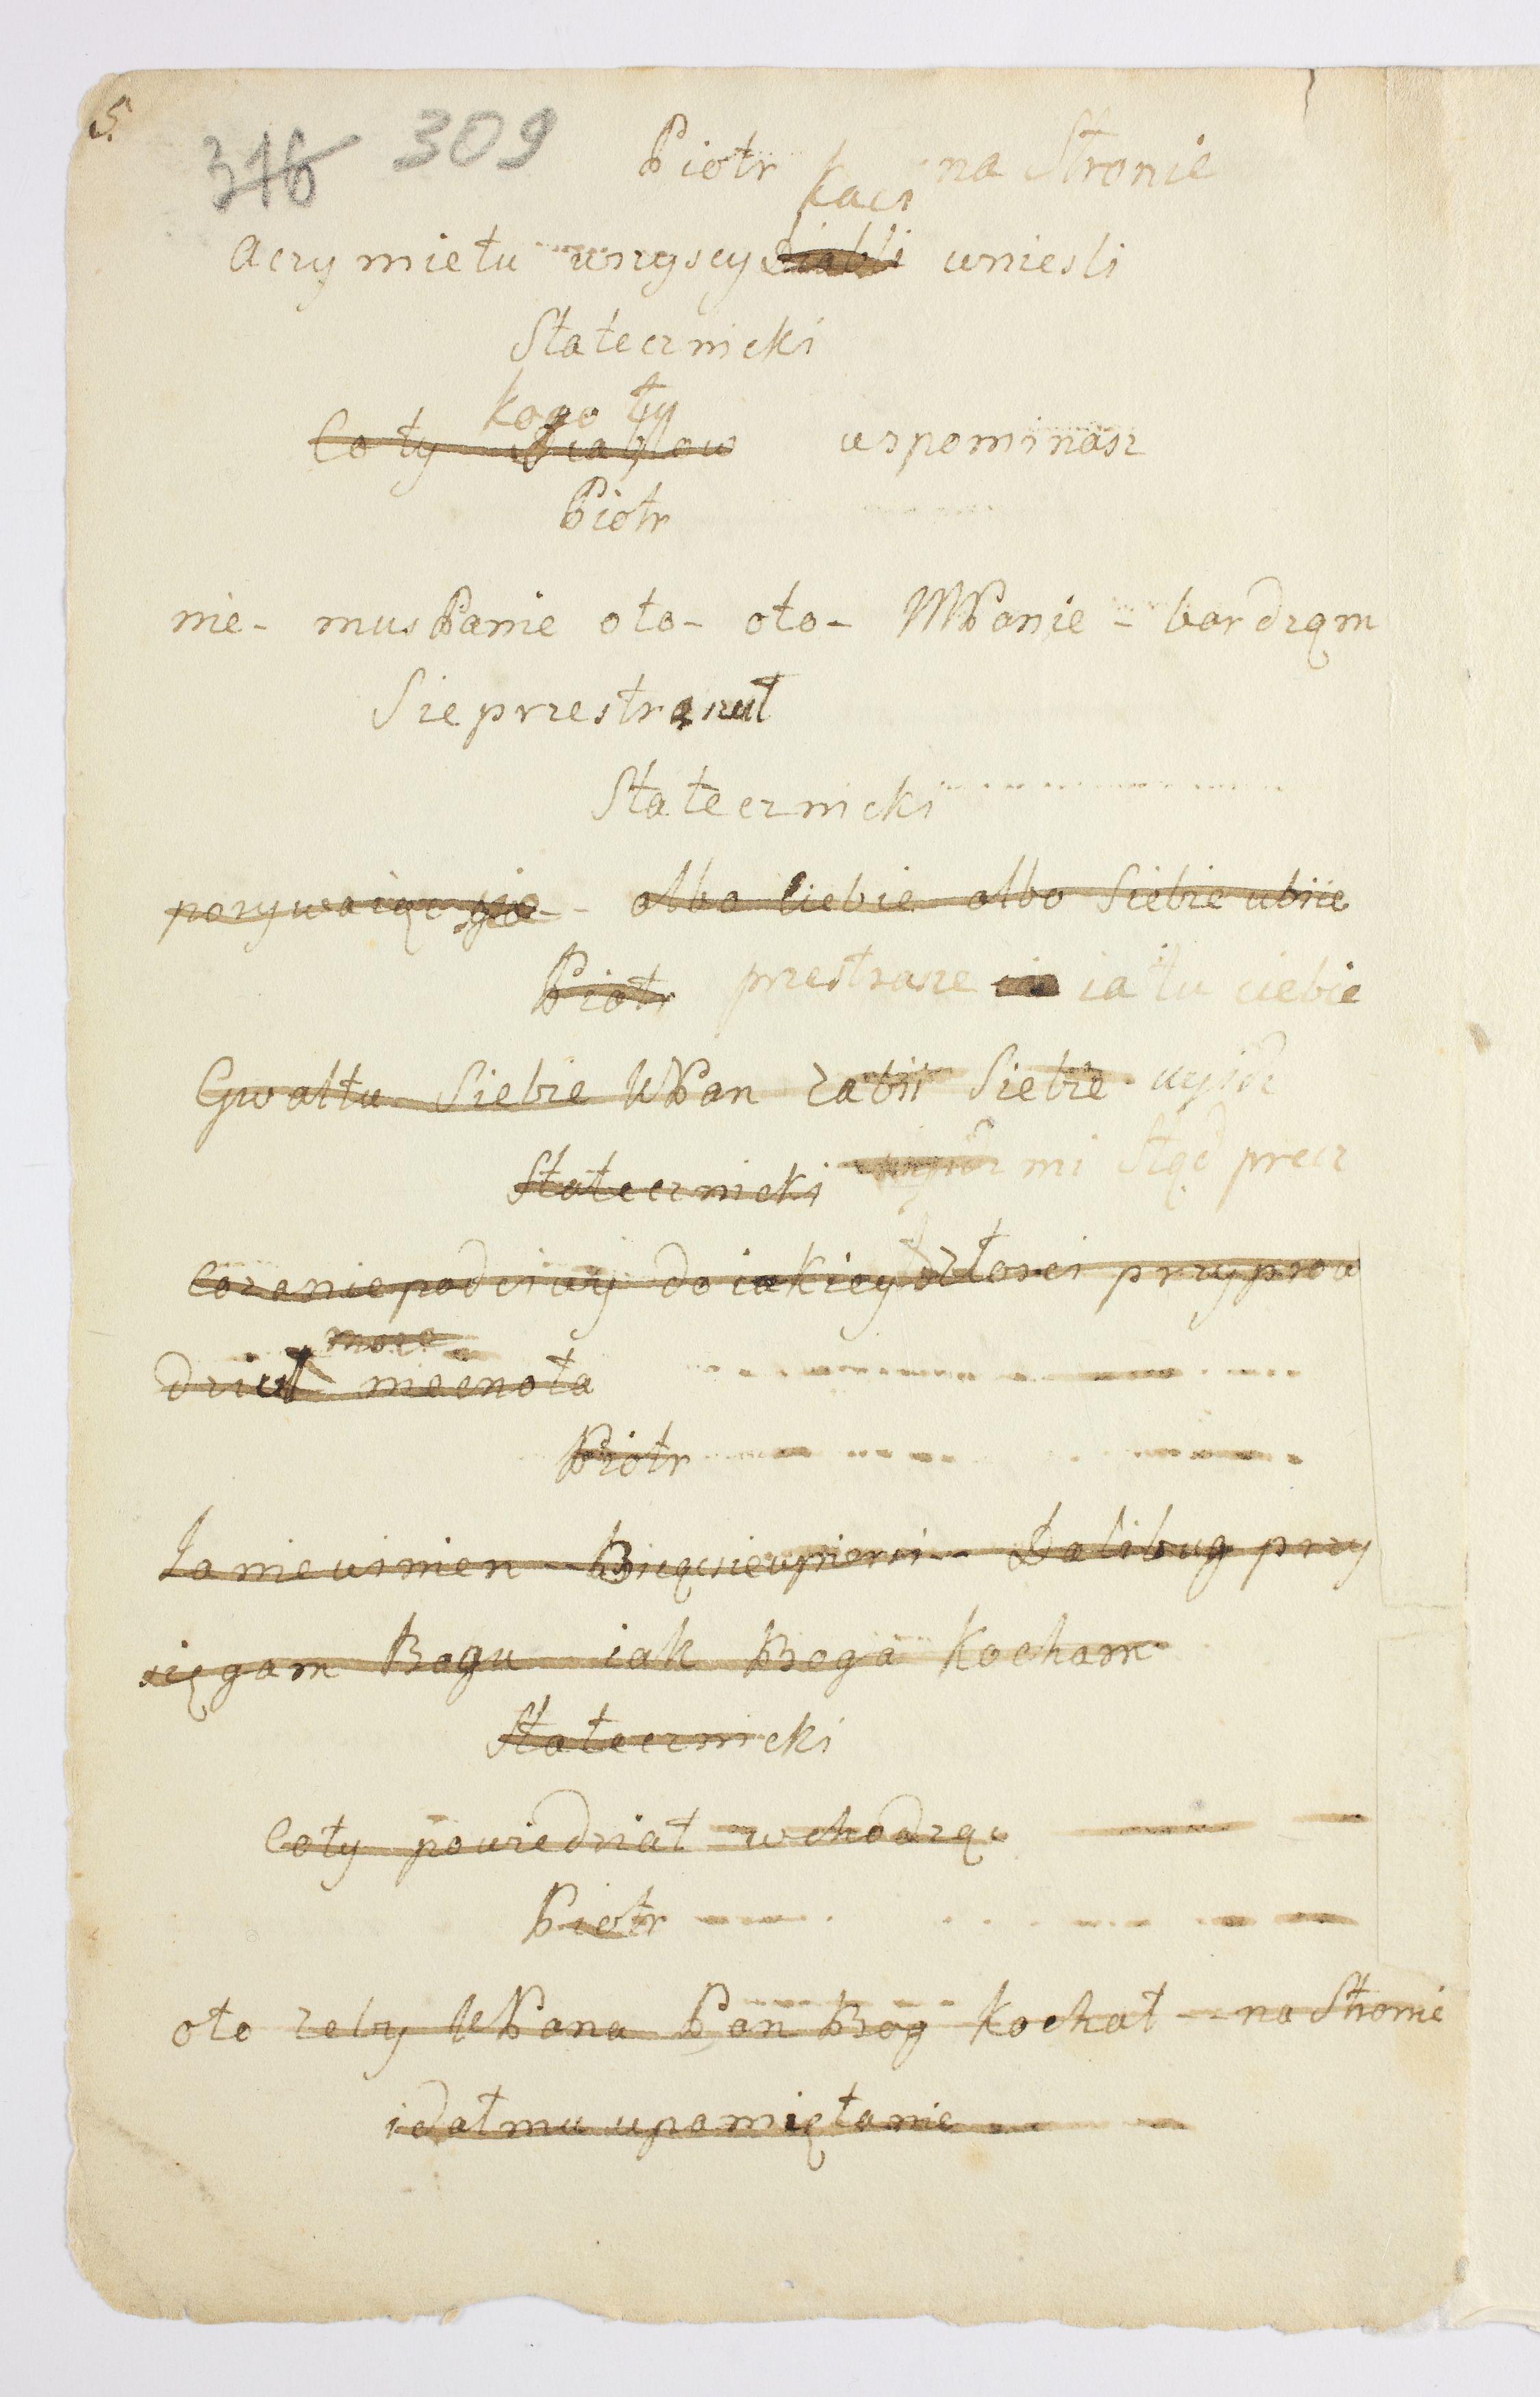 5.
316 309
Piotr na Stronie
kaci
a czy mie tu wszyscy diabli wniesli
Statecznicki
kogo ty
Co ty Diabłow wspominasz
Piotr
nie- mus Panie oto- oto- MPanie - bardząm
Sie przestraszuł
Statecznicki
porywaiąc sie - - albo Ciebie albo Siebie ubiie
Piotr przestrasze ia tu ciebie
Gwałtu Siebie WPan zabii Siebie wyidz
Statecznicki wyidz mi Stąd precz
Coza niepodciwy do iakiey złosci przyprow
moze
dziuł mie cnota
Piotr
Ja nie winien - Biiąc sie w piersi - - Dalibug przy
sięgam Bogu iak Boga kocham
Statecznicki
Co ty powiedział wchodząc
Piotr
oto zeby WPana Pan Bog kochał - - na Stronie
i dał mu upamiętanie